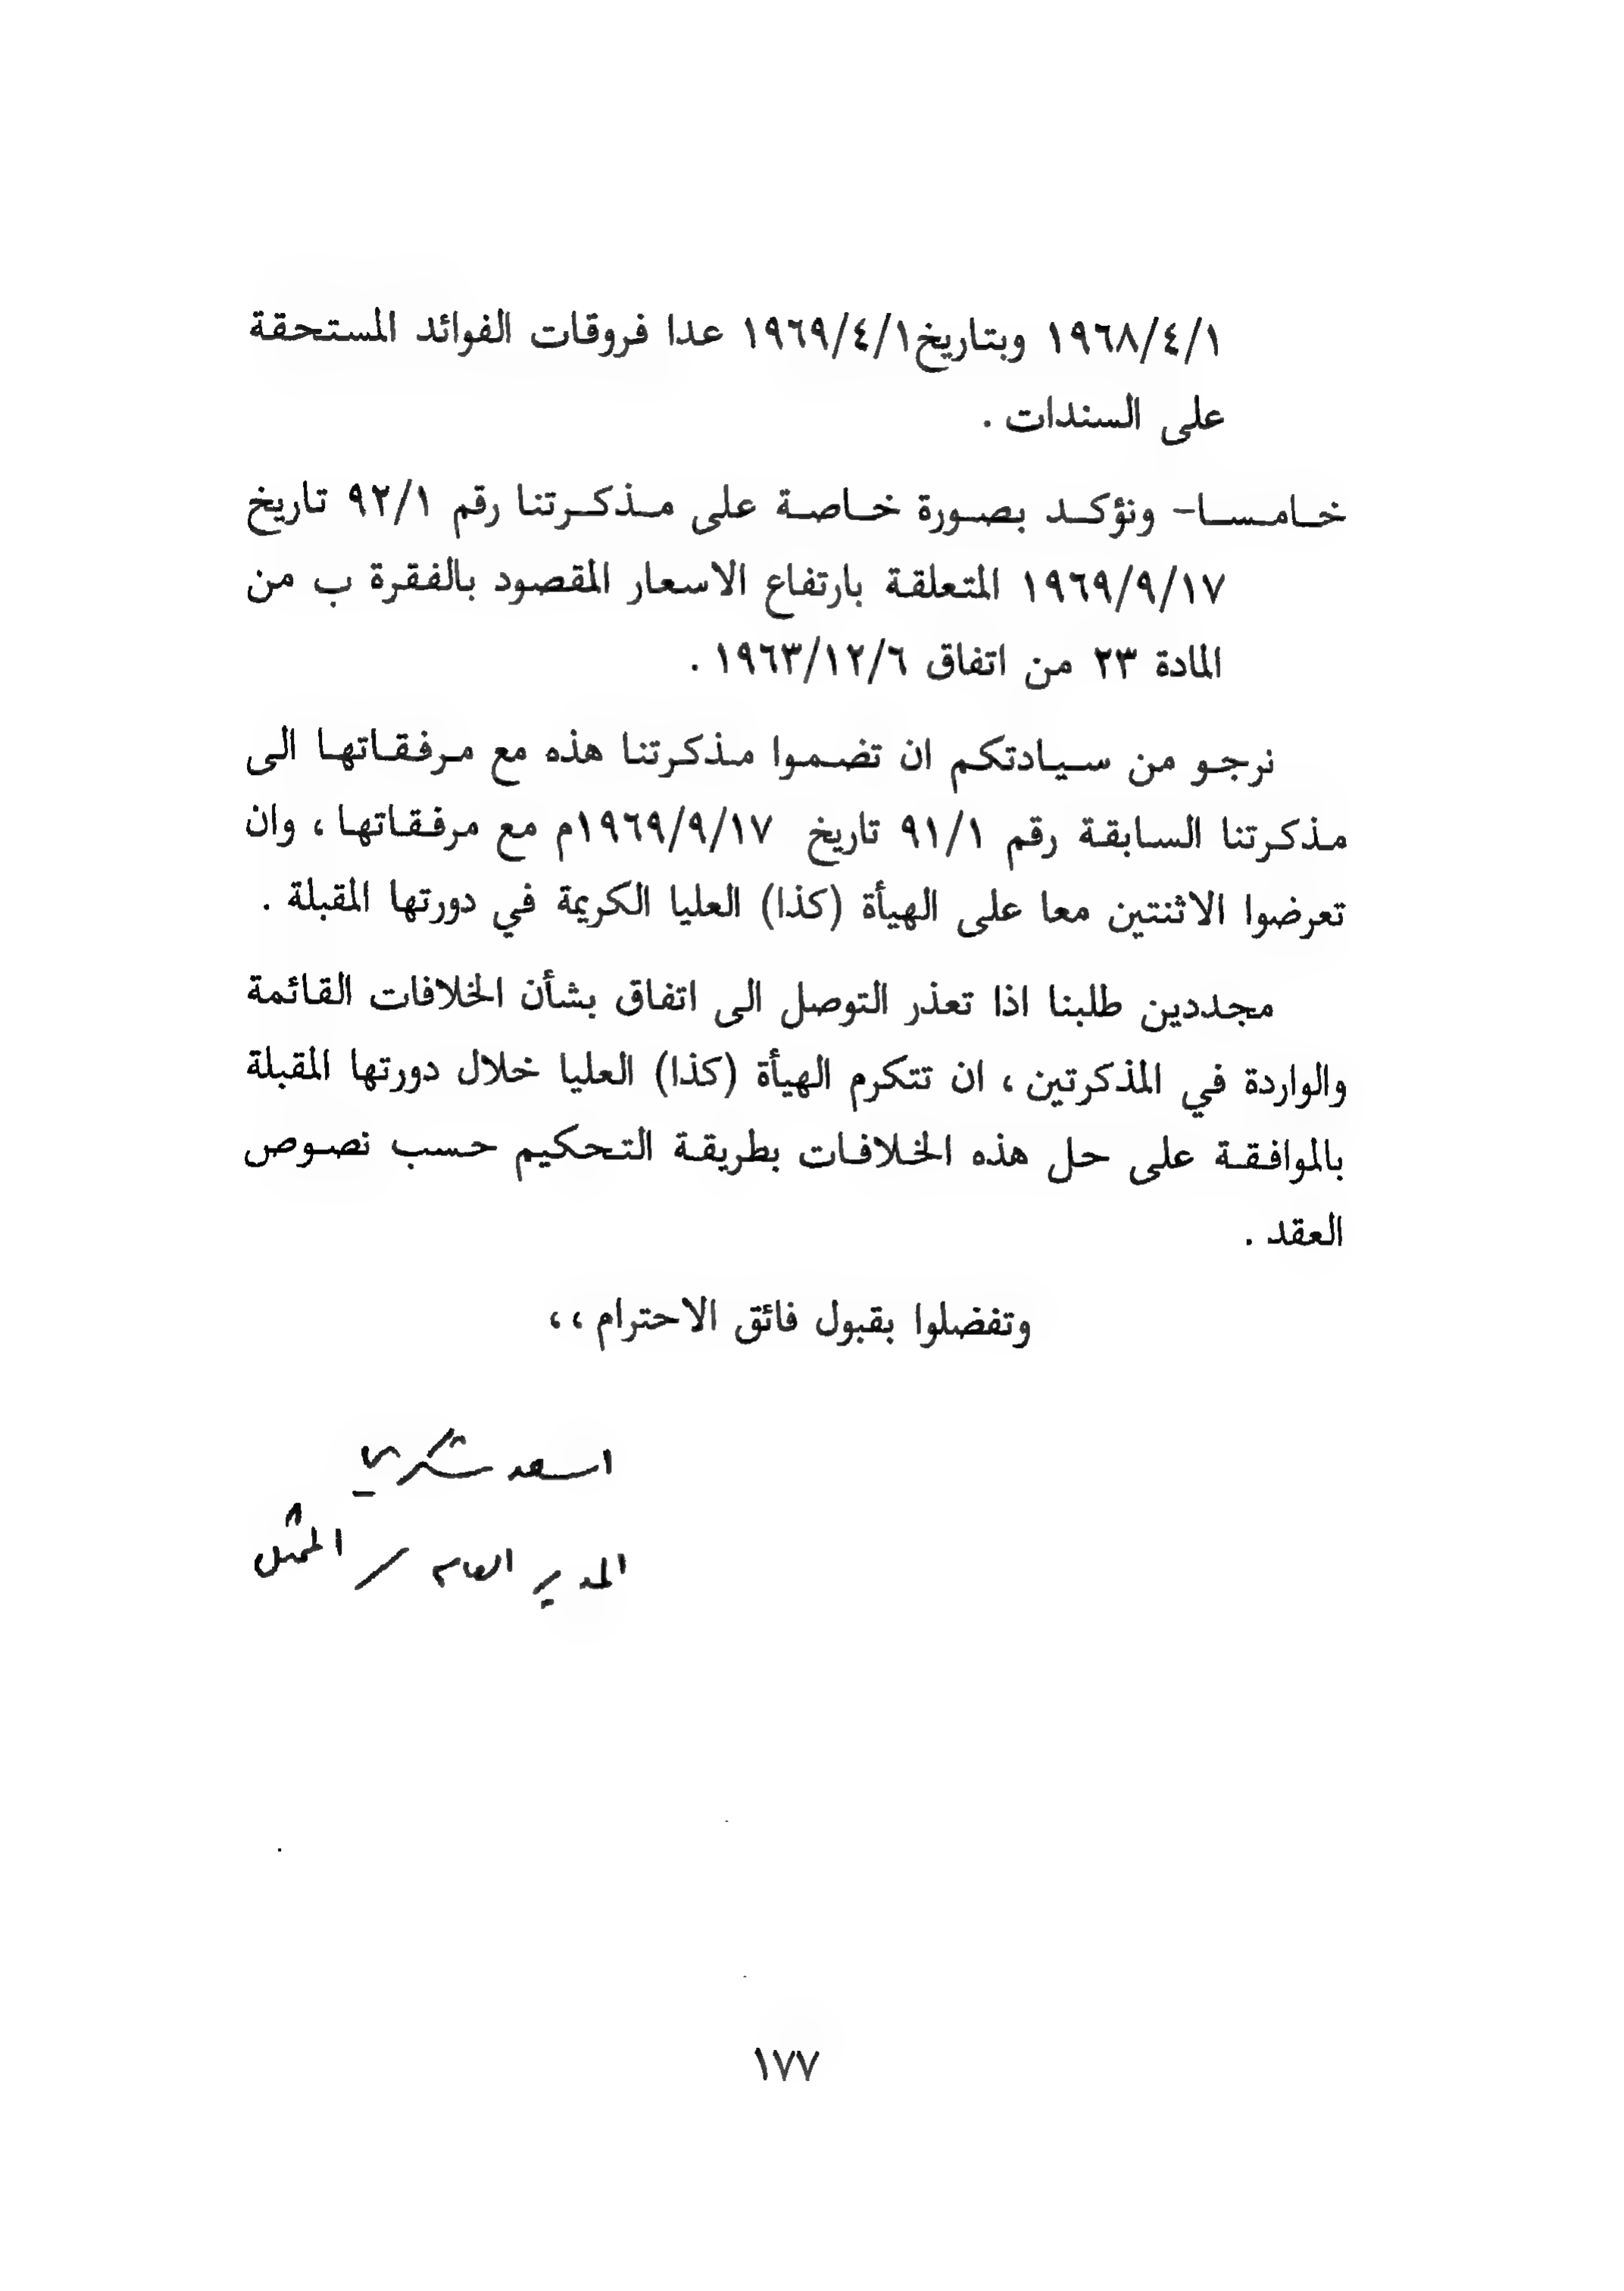 ١٩٦٨/٤/١ وبتاريخ١٩٦٩/٤/١ عدا فروقات الفوائد المستحقة
على السندات .
خامسا- ونؤكد بصورة خاصة على مذكرتنا رقم ٩٢/١ تاريخ
١٩٦٩/٩/١٧ المتعلقة بارتفاع الاسعار المقصود بالفقرة ب من
المادة ٢٣ من اتفاق ١٩٦٣/١٢/٦ .
نرجو من سيادتكم ان تضموا مذكرتنا هذه مع مرفقاتها الى
مذكرتنا السابقة رقم ٩١/١ تاريخ ١٩٦٩/٩/١٧م مع مرفقاتها ، وان
تعرضوا الاثنتين معا على الهيأة (كذا) العليا الكريمة في دورتها المقبلة .
مجددين طلبنا اذا تعذر التوصل الى اتفاق بشأن الخلافات القائمة
والواردة في المذكرتين ، ان تتكرم الهيأة (كذا) العليا خلال دورتها المقبلة
بالموافقة على حل هذه الخلافات بطريقة التحكيم حسب نصوص
العقد .
وتفضلوا بقبول فائق الاحترام ،،
اسعد شكري
المدير العام / الممثل
١٧٧